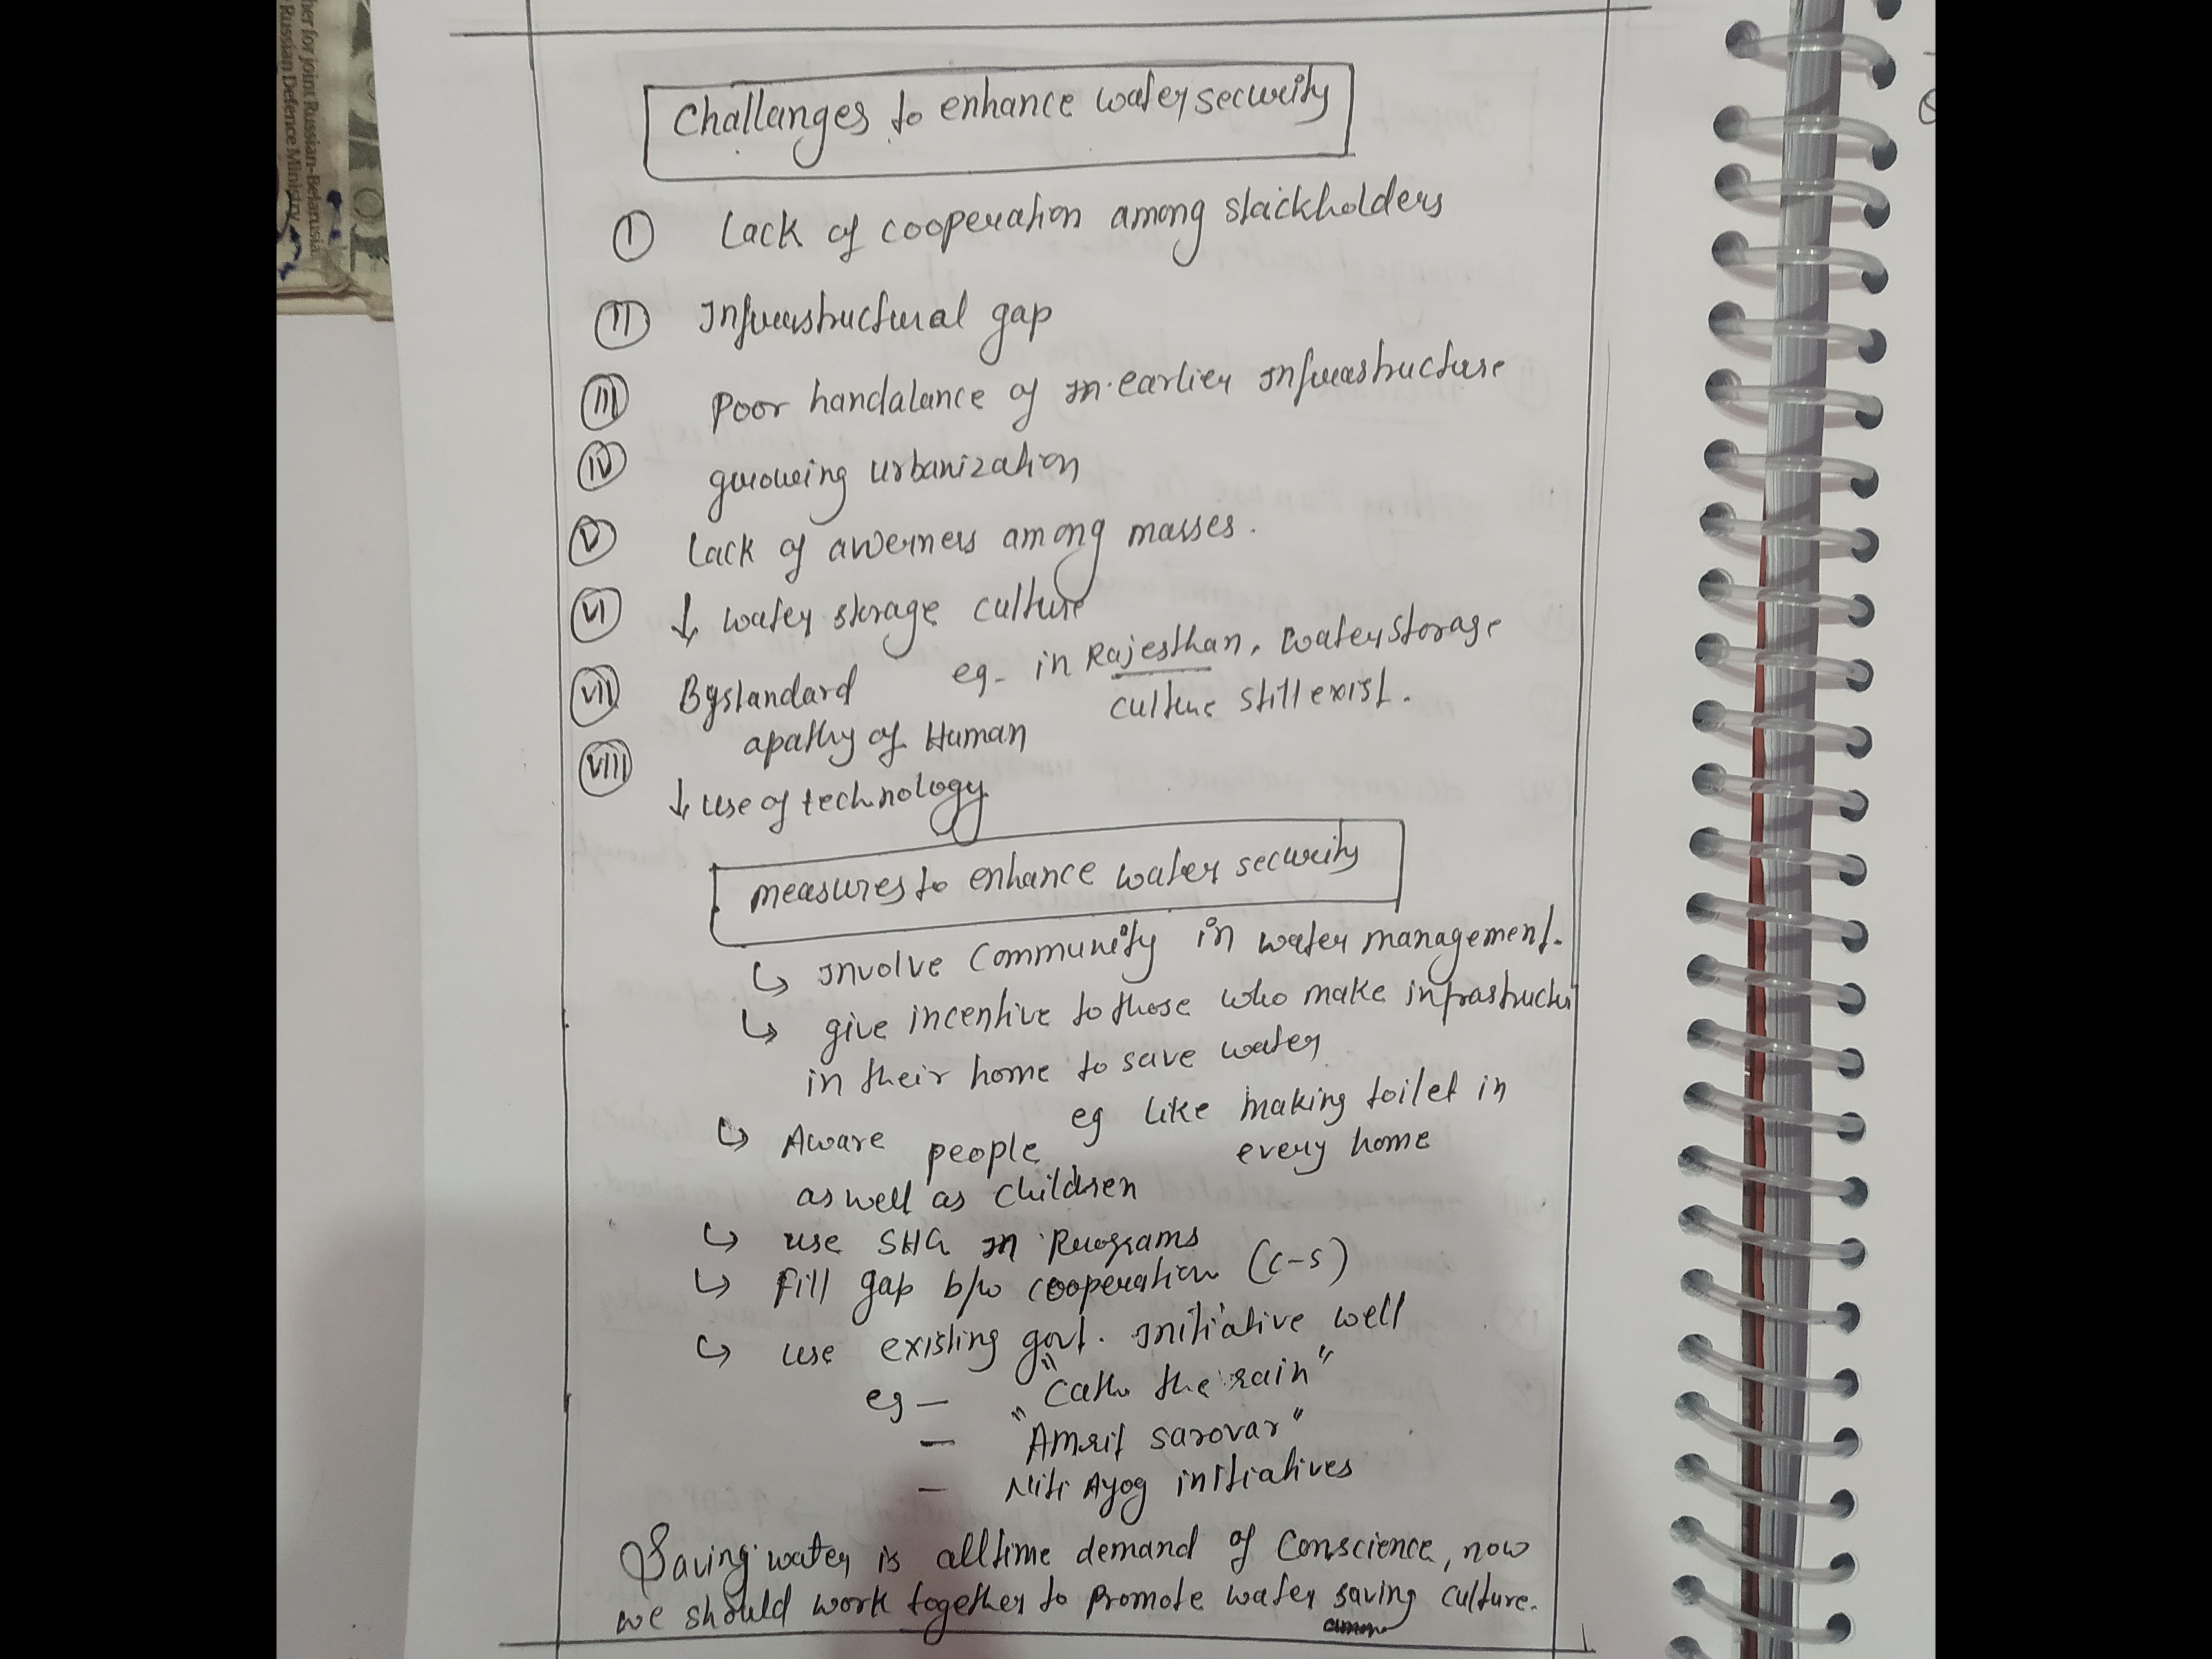 her for joint Russian-Belarusia
Russian Defence Ministry
Challanges to enhance water security
I Lack of cooperation among stackholders
II Infrastructural gap
III Poor handalance of in earlier infrastructure
IV growing urbanization
V Lack of awerness among masses.
VI ↓ water storage culture
eg- in Rajesthan, water storage
culture still exist.
VII Bystandard
apathy of Human
VIII ↓ use of technology
measures to enhance water security
↳ Involve Community in water management.
↳ give incentive to those who make infrastructu
in their home to save water
eg like making toilet in
every home
↳ Aware people
as well as children
↳ use SHG in Programs
↳ Fill gap b/w cooperation (C-S)
↳ use existing govt. initiative well
eg — "Catch the rain"
— "Amrit sarovar"
— Niti Ayog initiatives
Saving water is alltime demand of Conscience, now
we should work together to Promote water saving culture.